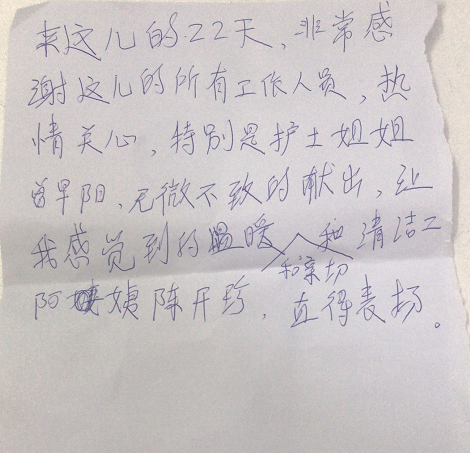 来这儿的22天，非常感
谢这儿的所有工作人员，热
情关心，特别是护士姐姐
曾早阳，无微不致的献出，让
我感觉到的温暖和亲切和清洁工
阿姨陈开珍，直得表扬。